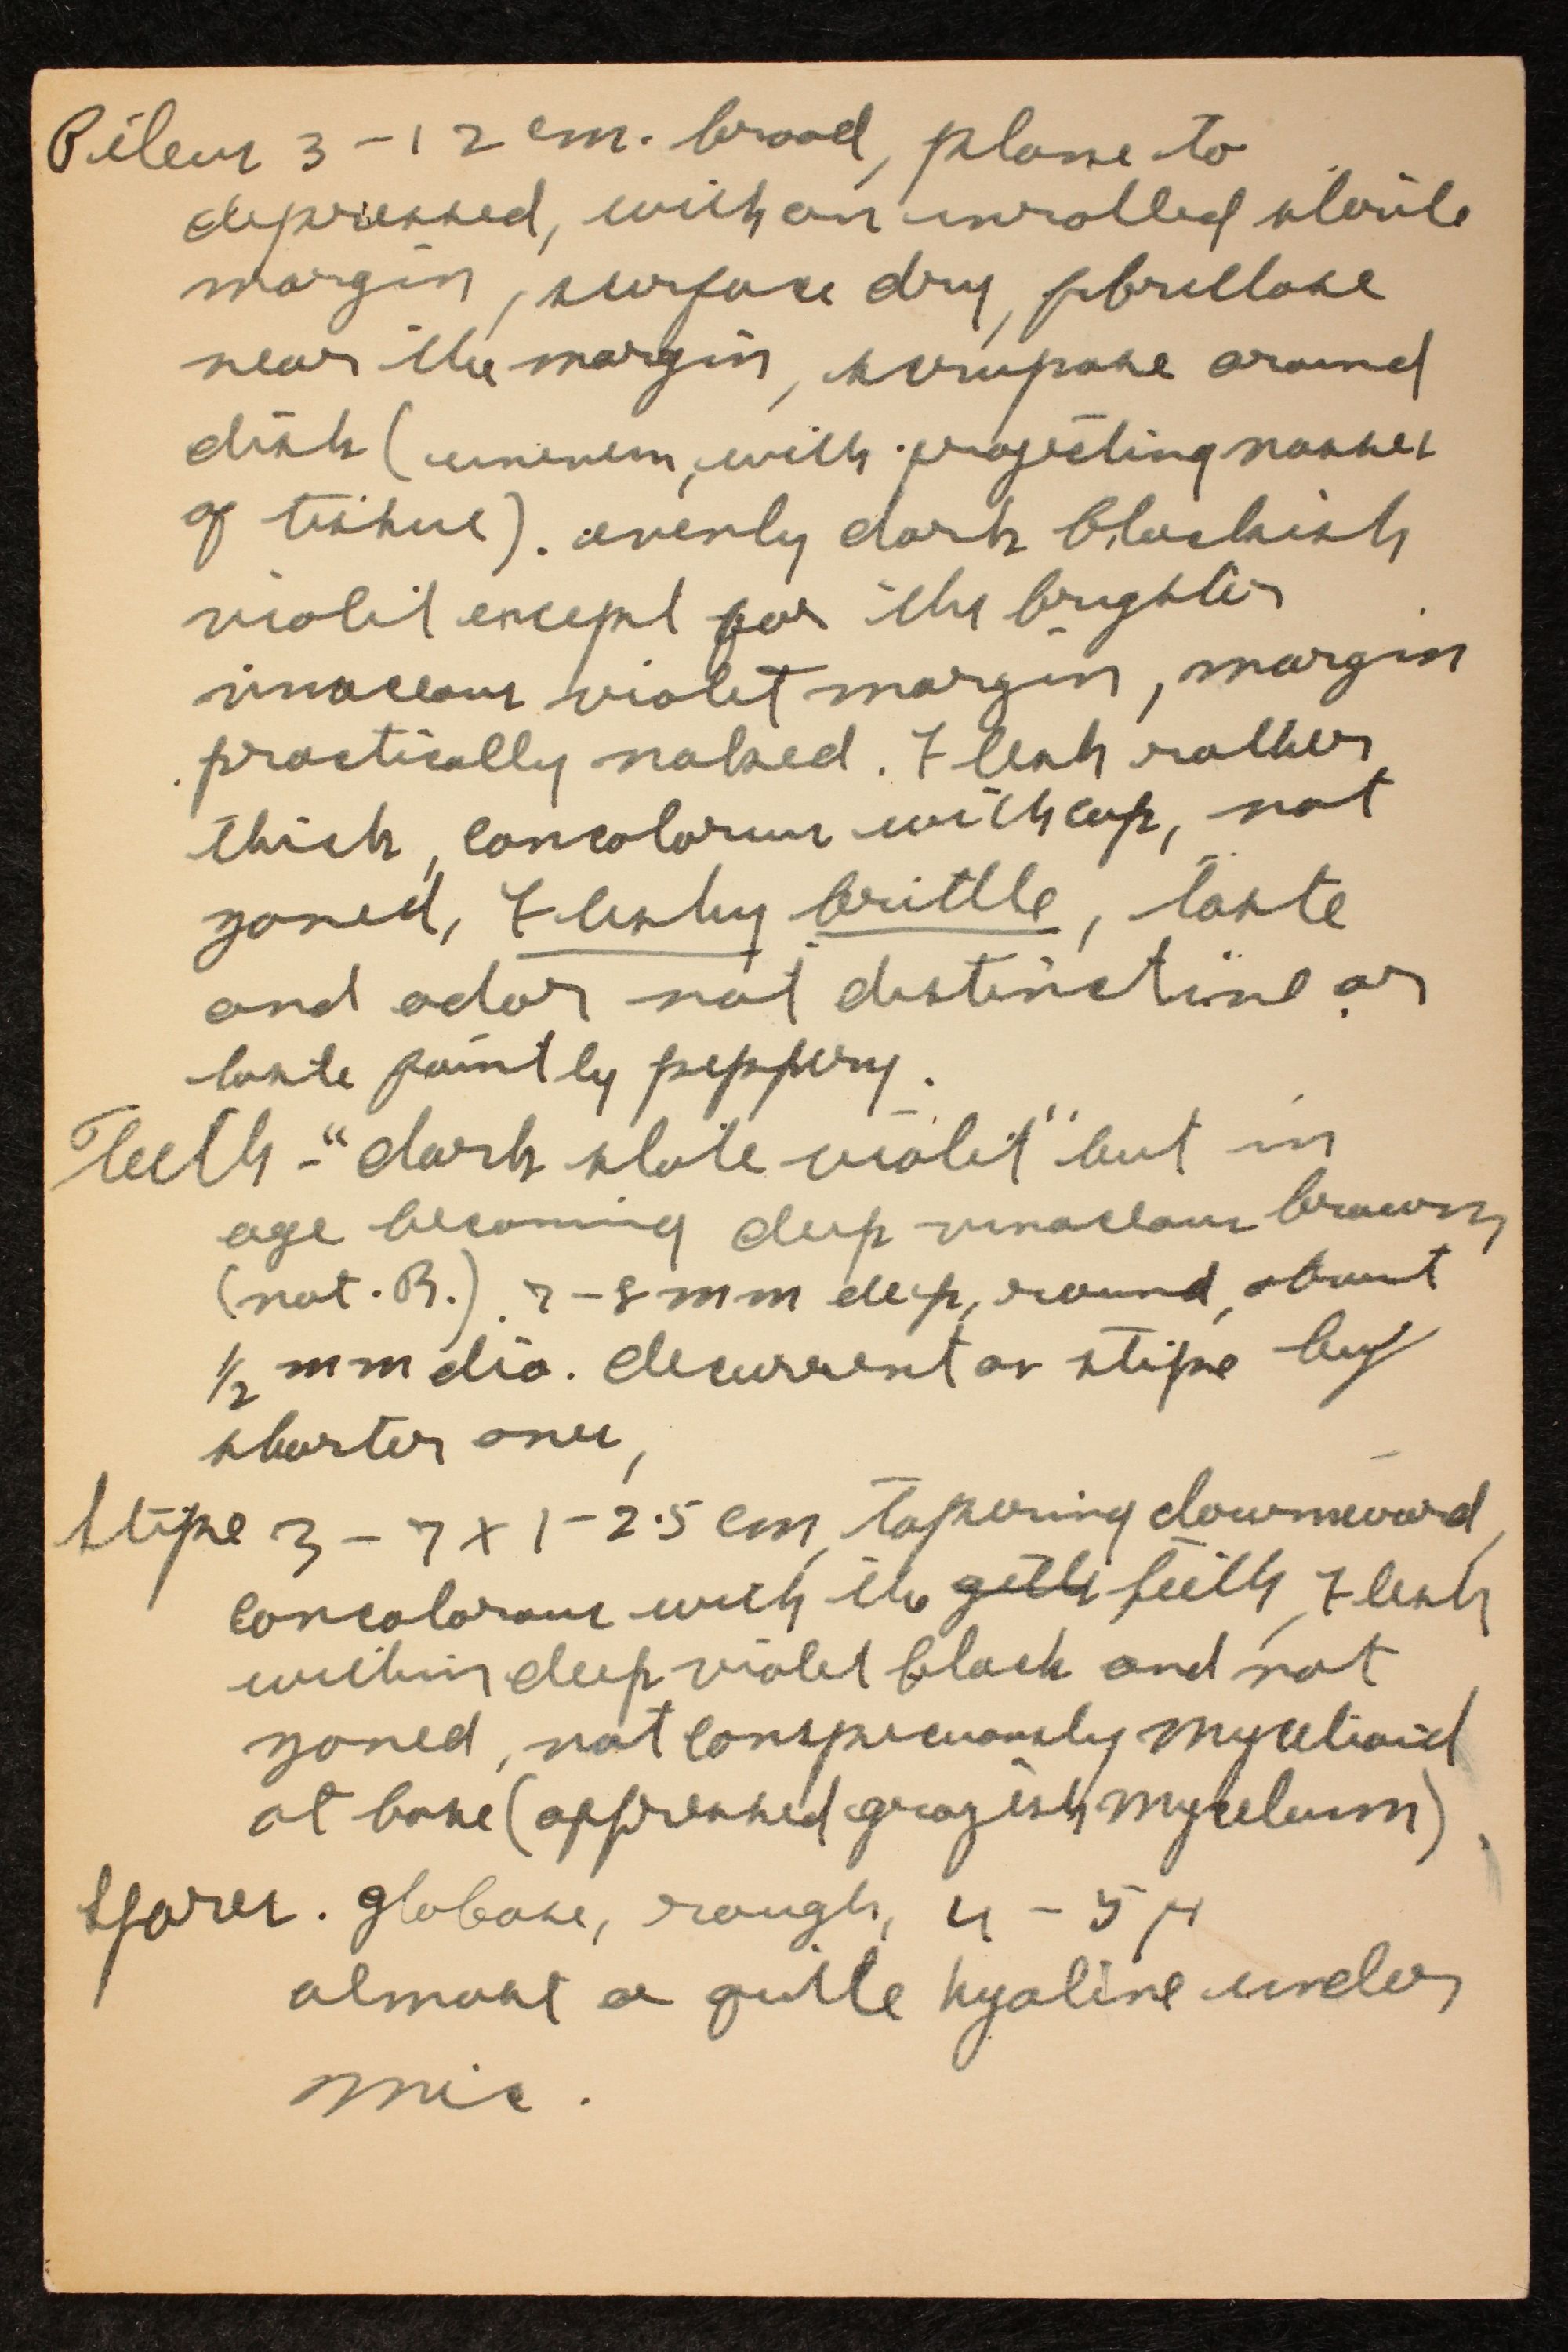 Pileus 3-12 cm. broad, plane to
depressed, with an inrolled sterile
margin, surface dry, fibrillose
near the margin, scrupose around
disk (uneven, with projecting masses
of tissue). evenly dark blackish
violet except for the brighter
vinaceous violet margin, margin
practically naked. Flesh rather
thick, concolorous with cap, not
zoned, fleshy brittle, taste
and odor not distinctive or
taste faintly peppery.
Teeth - "dark slate violet" but in
age becoming deep vinaceous brown
(not. R.). 7-8 mm deep, round, about
1/2 mm dia. decurrent on stipe by
shorter ones,
Stipe 3-7 x 1-2.5 cm, tapering downward,
concolorous with the gills teeth, flesh
within deep violet black and not
zoned, not conspicuously mycelioid
at base (appressed grayish mycelium).
Spores. globose, rough, 4-5 μ
almost or quite hyaline under
mic.